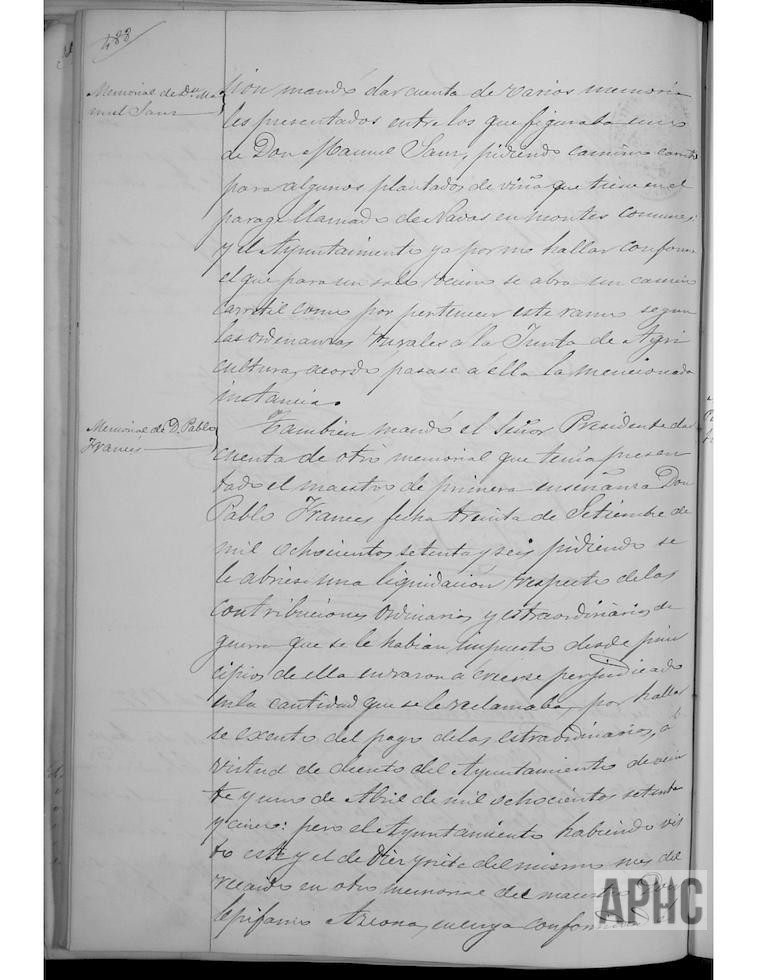 488
Memorial de Dn Ma
nuel Sanz
sion mandó dar cuenta de varios memoria
les presentados entre los que figuraba uno
de Don Manuel Sanz, pidiendo camino
para algunos plantados de viña que tiene en el
parage llamado de Navas en montes comunes:
y el Ayuntamiento ya por no hallar conforme
el que para un solo vecino se abra un camino
carretil como por pertenecer este ramo segun
las ordenanzas rurales a la Junta de Agri
cultura, acordó pasase á ella la mencionada
instancia.
Memorial de D. Pablo
Francés
Tambien mandó el Señor Presidente dar
cuenta de otro memorial que tenía presen
tado el maestro de primera enseñanza Don
Pablo Francés fecha treinta de Setiembre de
mil ochocientos setenta y seis pidiendo se
le abriese una liquidacion respecto de las
contribuciones ordinarias y estraordinarias de
guerra que se le habian impuesto desde prin
cipios de ella en razon á creerse perjudicado
en la cantidad que se le reclamaba, por hallar
se exento del pago de las estraordinarias, á
virtud de decreto del Ayuntamiento de vein
te y uno de Abril de mil ochocientos setenta
y cinco: pero el Ayuntamiento habiendo vis
to este y el de diez y siete del mismo mes del
recaido en otro memorial del maestro Don
Epifanio Azcona, en cuya
APHC